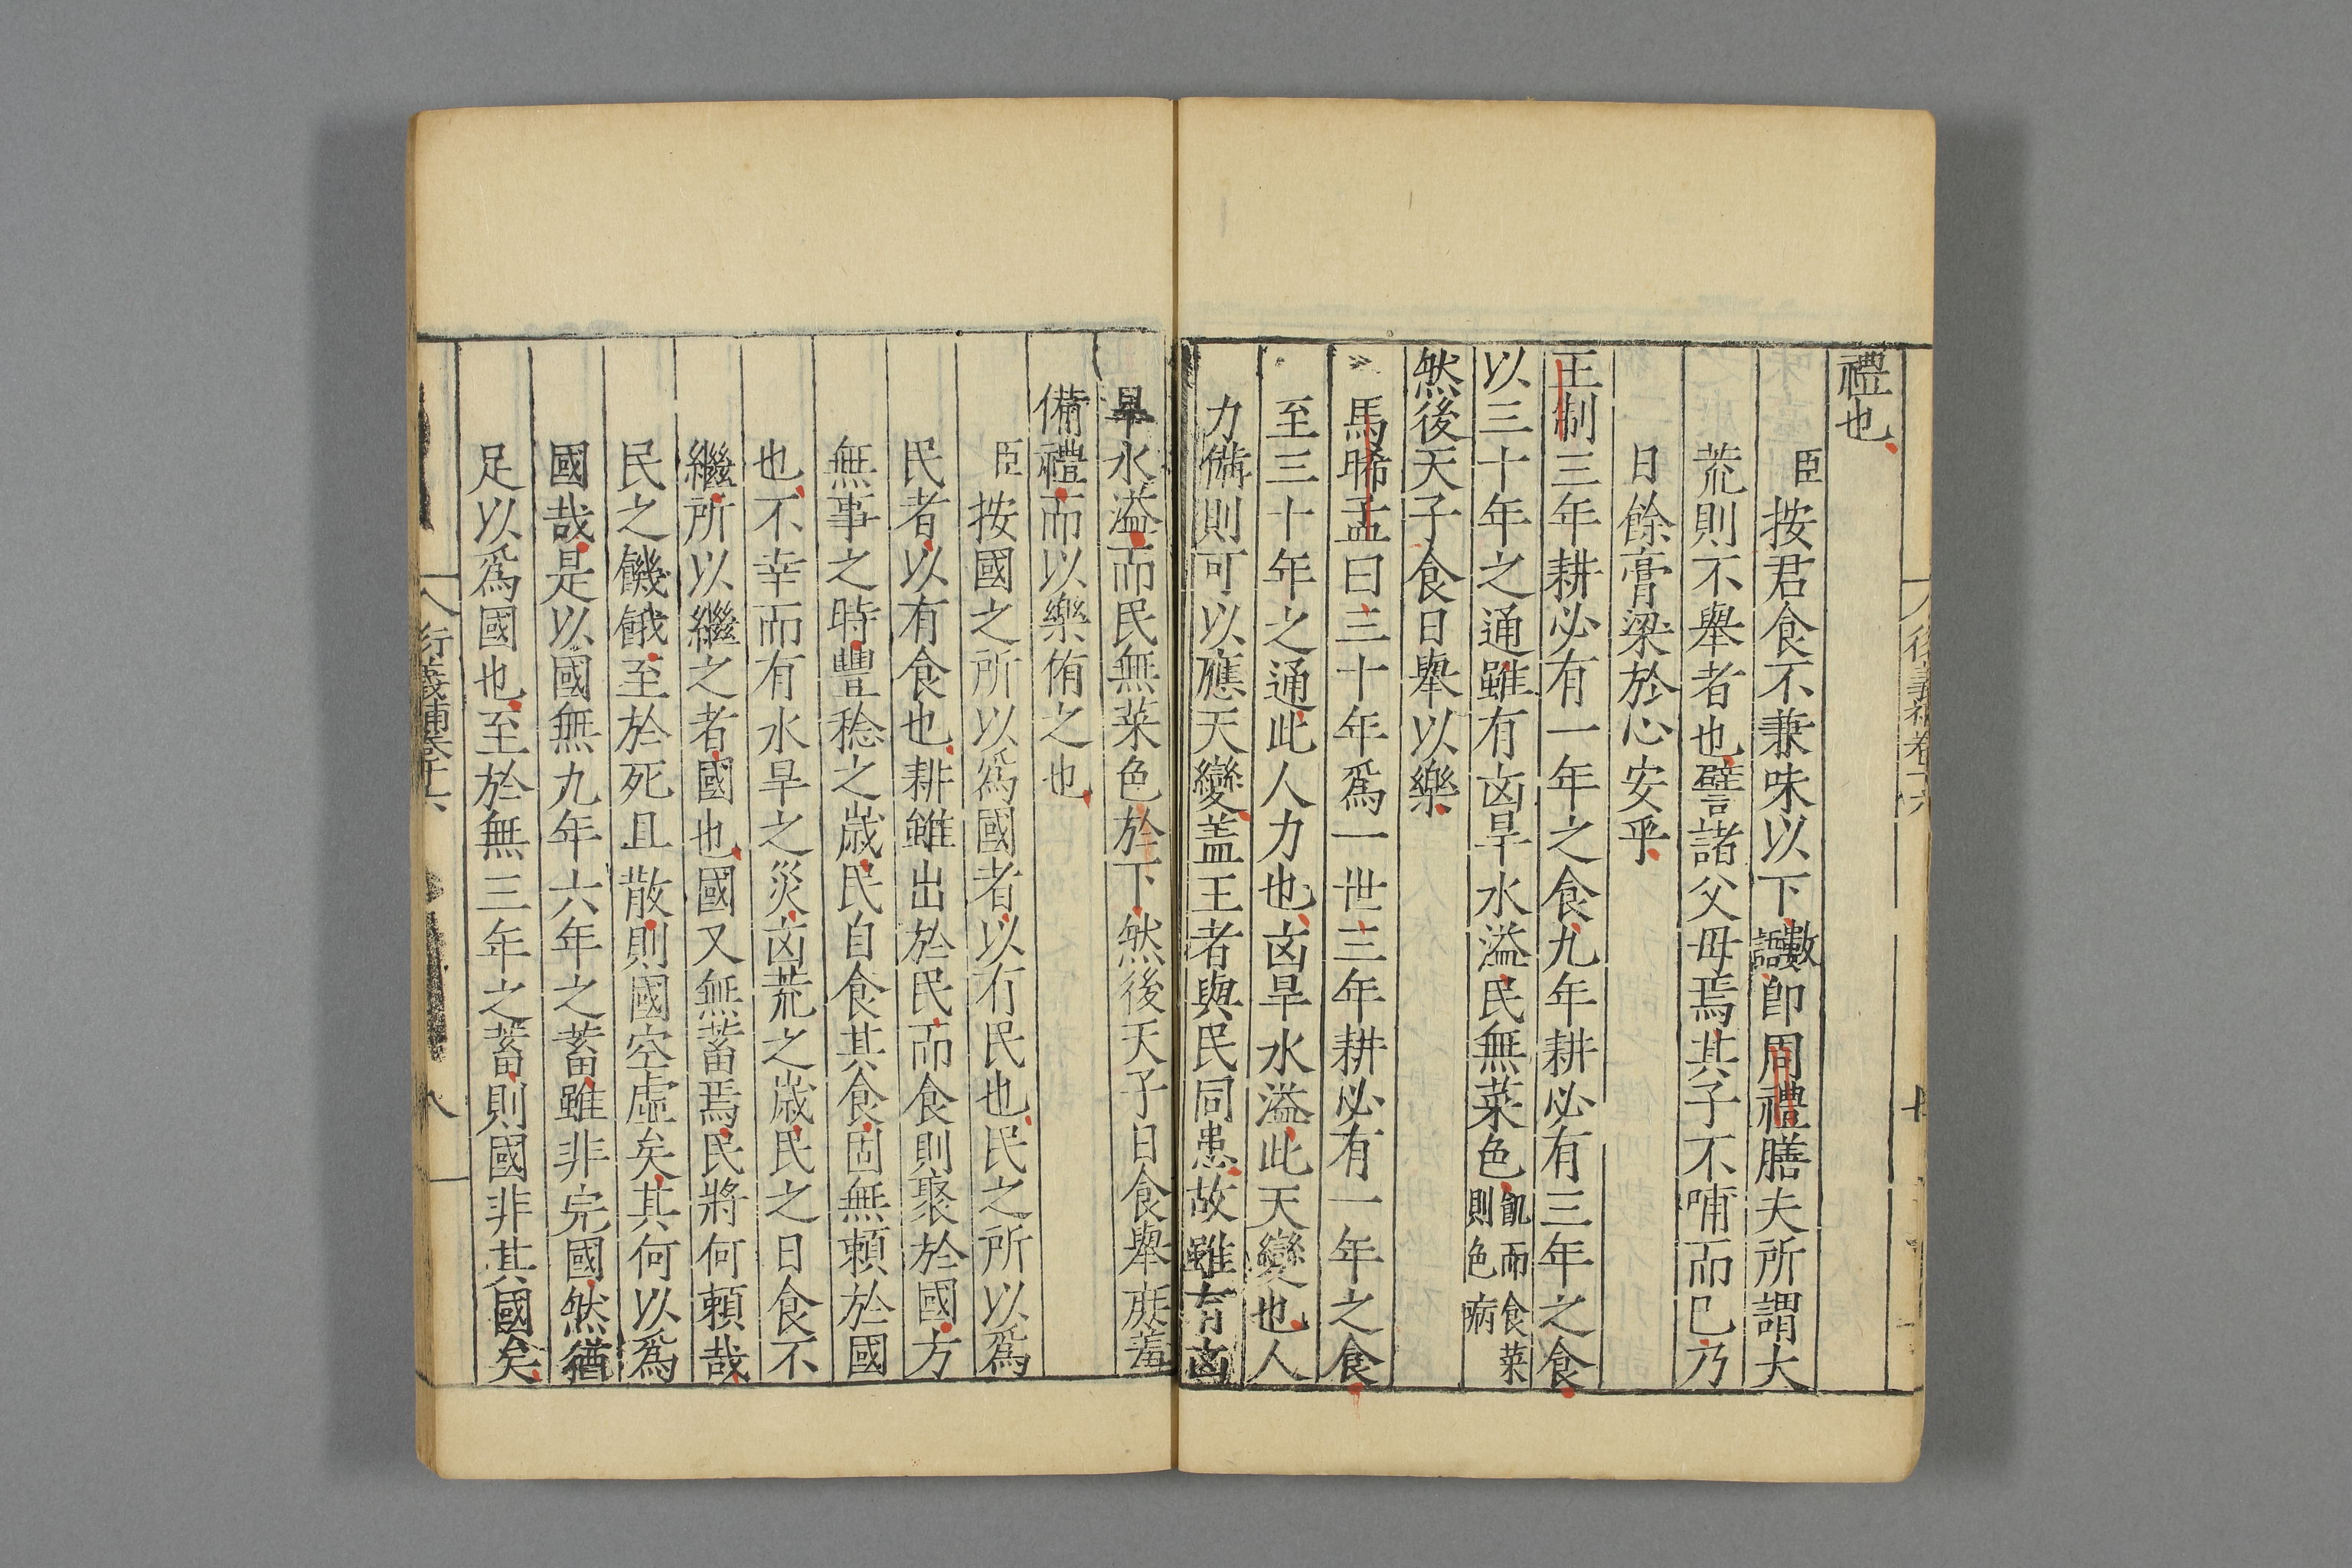 禮也
臣按君食不兼味以下數語即周禮膳夫所謂大
荒則不舉者也譬諸父母焉其子不哺而已乃
日餘膏粱於心安乎
王制三年耕必有一年之食九年耕必有三年之食
以三十年之通雖有凶旱水溢民無菜色飢而食菜則色病
然後天子食日舉以樂
馬晞孟曰三十年為一世三年耕必有一年之食
至三十年之通此人力也凶旱水溢此天變也人
力備則可以應天變蓋王者與民同患故雖有凶
旱水溢而民無菜色於下然後天子日食舉庶羞
備禮而以樂侑之也
臣按國之所以為國者以有民也民之所以為
民者以有食也耕雖出於民而食則聚於國方
無事之時豐稔之歲民自食其食固無賴於國
也不幸而有水旱之災凶荒之歲民之日食不
繼所以繼之者國也國又無蓄焉民將何賴哉
民之饑餓至於死且散則國空虛矣其何以為
國哉是以國無九年六年之蓄雖非完國然猶
足以為國也至於無三年之蓄則國非其國矣
衍義補卷十六
八